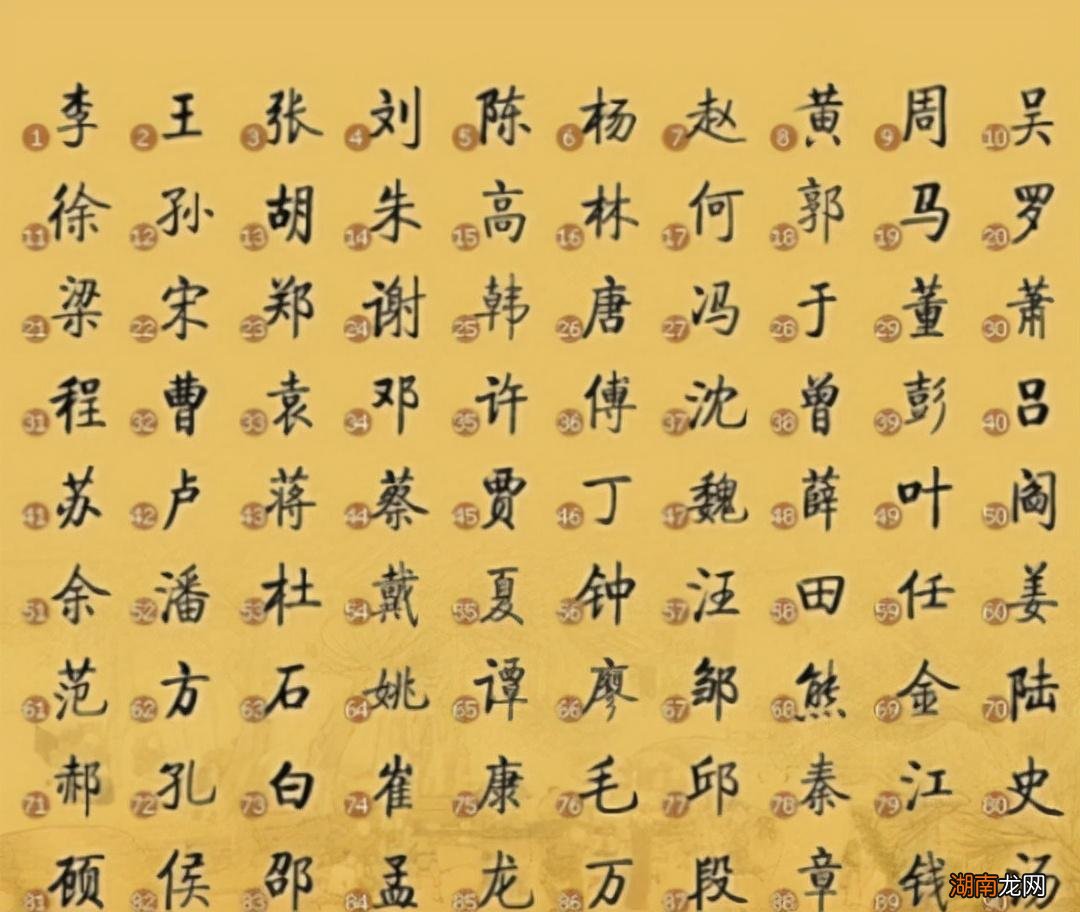 1 李 2 王 3 张 4 刘 5 陈 6 杨 7 赵 8 黄 9 周 10 吴
11 徐 12 孙 13 胡 14 朱 15 高 16 林 17 何 18 郭 19 马 20 罗
21 梁 22 宋 23 郑 24 谢 25 韩 26 唐 27 冯 28 于 29 董 30 萧
31 程 32 曹 33 袁 34 邓 35 许 36 傅 37 沈 38 曾 39 彭 40 吕
41 苏 42 卢 43 蒋 44 蔡 45 贾 46 丁 47 魏 48 薛 49 叶 50 阎
51 余 52 潘 53 杜 54 戴 55 夏 56 钟 57 汪 58 田 59 任 60 姜
61 范 62 方 63 石 64 姚 65 谭 66 廖 67 邹 68 熊 69 金 70 陆
71 郝 72 孔 73 白 74 崔 75 康 76 毛 77 邱 78 秦 79 江 80 史
81 顾 82 侯 83 邵 84 孟 85 龙 86 万 87 段 88 章 89 钱 90 汤
湖南龙网